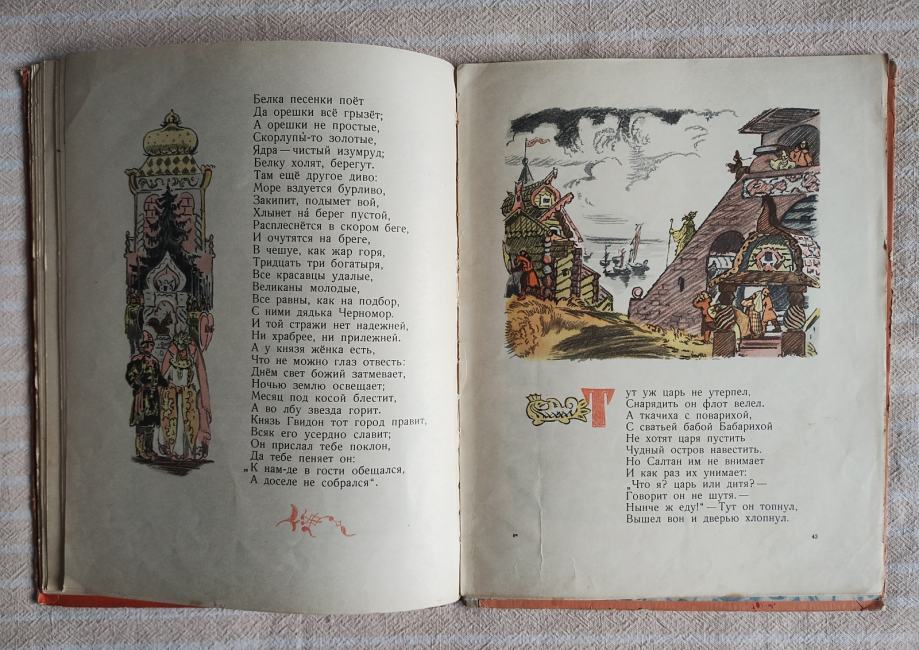 Белка песенки поёт
Да орешки всё грызёт;
А орешки не простые,
Скорлупы́-то золотые,
Ядра — чистый изумруд;
Белку холят, берегут.
Там ещё другое диво:
Море вздуется бурливо,
Закипит, подымет вой,
Хлынет на́ берег пустой,
Расплеснётся в скором беге,
И очутятся на бреге,
В чешуе, как жар горя,
Тридцать три богатыря,
Все красавцы удалые,
Великаны молодые,
Все равны, как на подбор,
С ними дядька Черномор.
И той стражи нет надежней,
Ни храбрее, ни прилежней.
А у князя жёнка есть,
Что не можно глаз отвесть:
Днём свет божий затмевает,
Ночью землю освещает;
Месяц под косой блестит,
А во лбу звезда горит.
Князь Гвидон тот город правит,
Всяк его усердно славит;
Он прислал тебе поклон,
Да тебе пеняет он:
„К нам-де в гости обещался,
А доселе не собрался“.
Тут уж царь не утерпел,
Снарядить он флот велел.
А ткачиха с поварихой,
С сватьей бабой Бабарихой
Не хотят царя пустить
Чудный остров навестить.
Но Салтан им не внимает
И как раз их унимает:
„Что я? царь или дитя? —
Говорит он не шутя. —
Нынче ж еду!“ — Тут он топнул,
Вышел вон и дверью хлопнул.
43